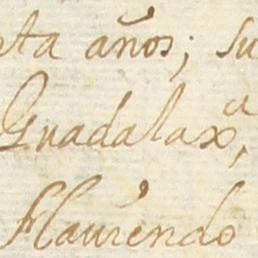 ta años; su
Guadalaxª,
Haviendo